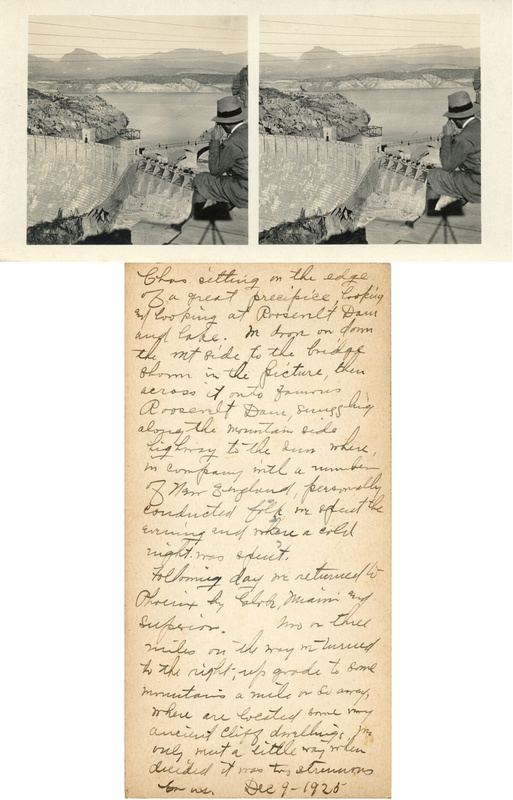 Chas. sitting on the edge
of a great precipice looking
looking at Roosevelt Dam
and lake. We drove on down
the mt side to the bridge
shown in the picture, then
across it onto famous
Roosevelt Dam,
along the mountain side
highway to the Inn where,
in company with a number
of New England, personally
conducted folk we spent the
evening and where a cold
night was spent.
Following day we returned to
Phoenix by Globe, Miami and
Superior. Two or three
miles on the way we turned
to the right, up grade to some
mountains a mile or so away,
where are located some very
ancient cliff dwellings. We
only went a little way when
decided it was too strenuous
for us. Dec 9-1925